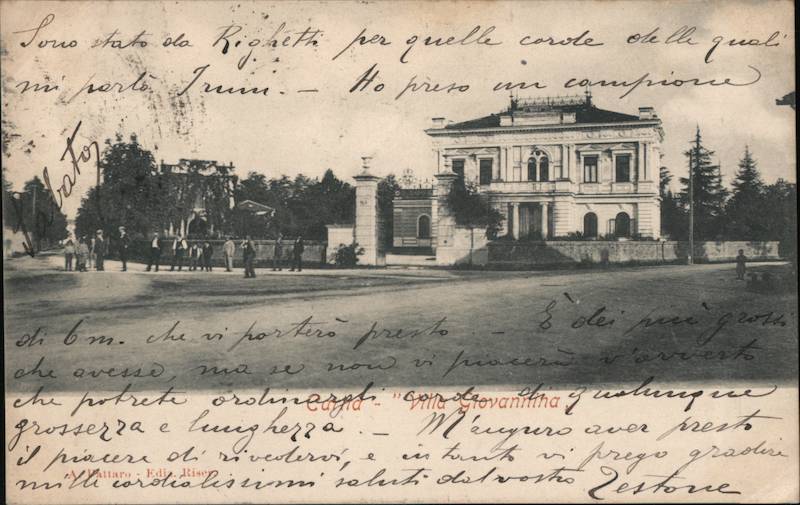 Sono stato da Righetti per quelle corde delle quali
mi parlò Irmi. — Ho preso un campione
Sabato
di 6 m. che vi porterò presto — È dei più grossi
che avesse, ma se non vi piacerà v'avverto
che potrete ordinargli corde di qualunque
"Villa Giovannina
grossezza e lunghezza. — M'auguro aver presto
il piacere di rivedervi, e intanto vi prego gradire
mille cordialissimi saluti dal vostro Zestone